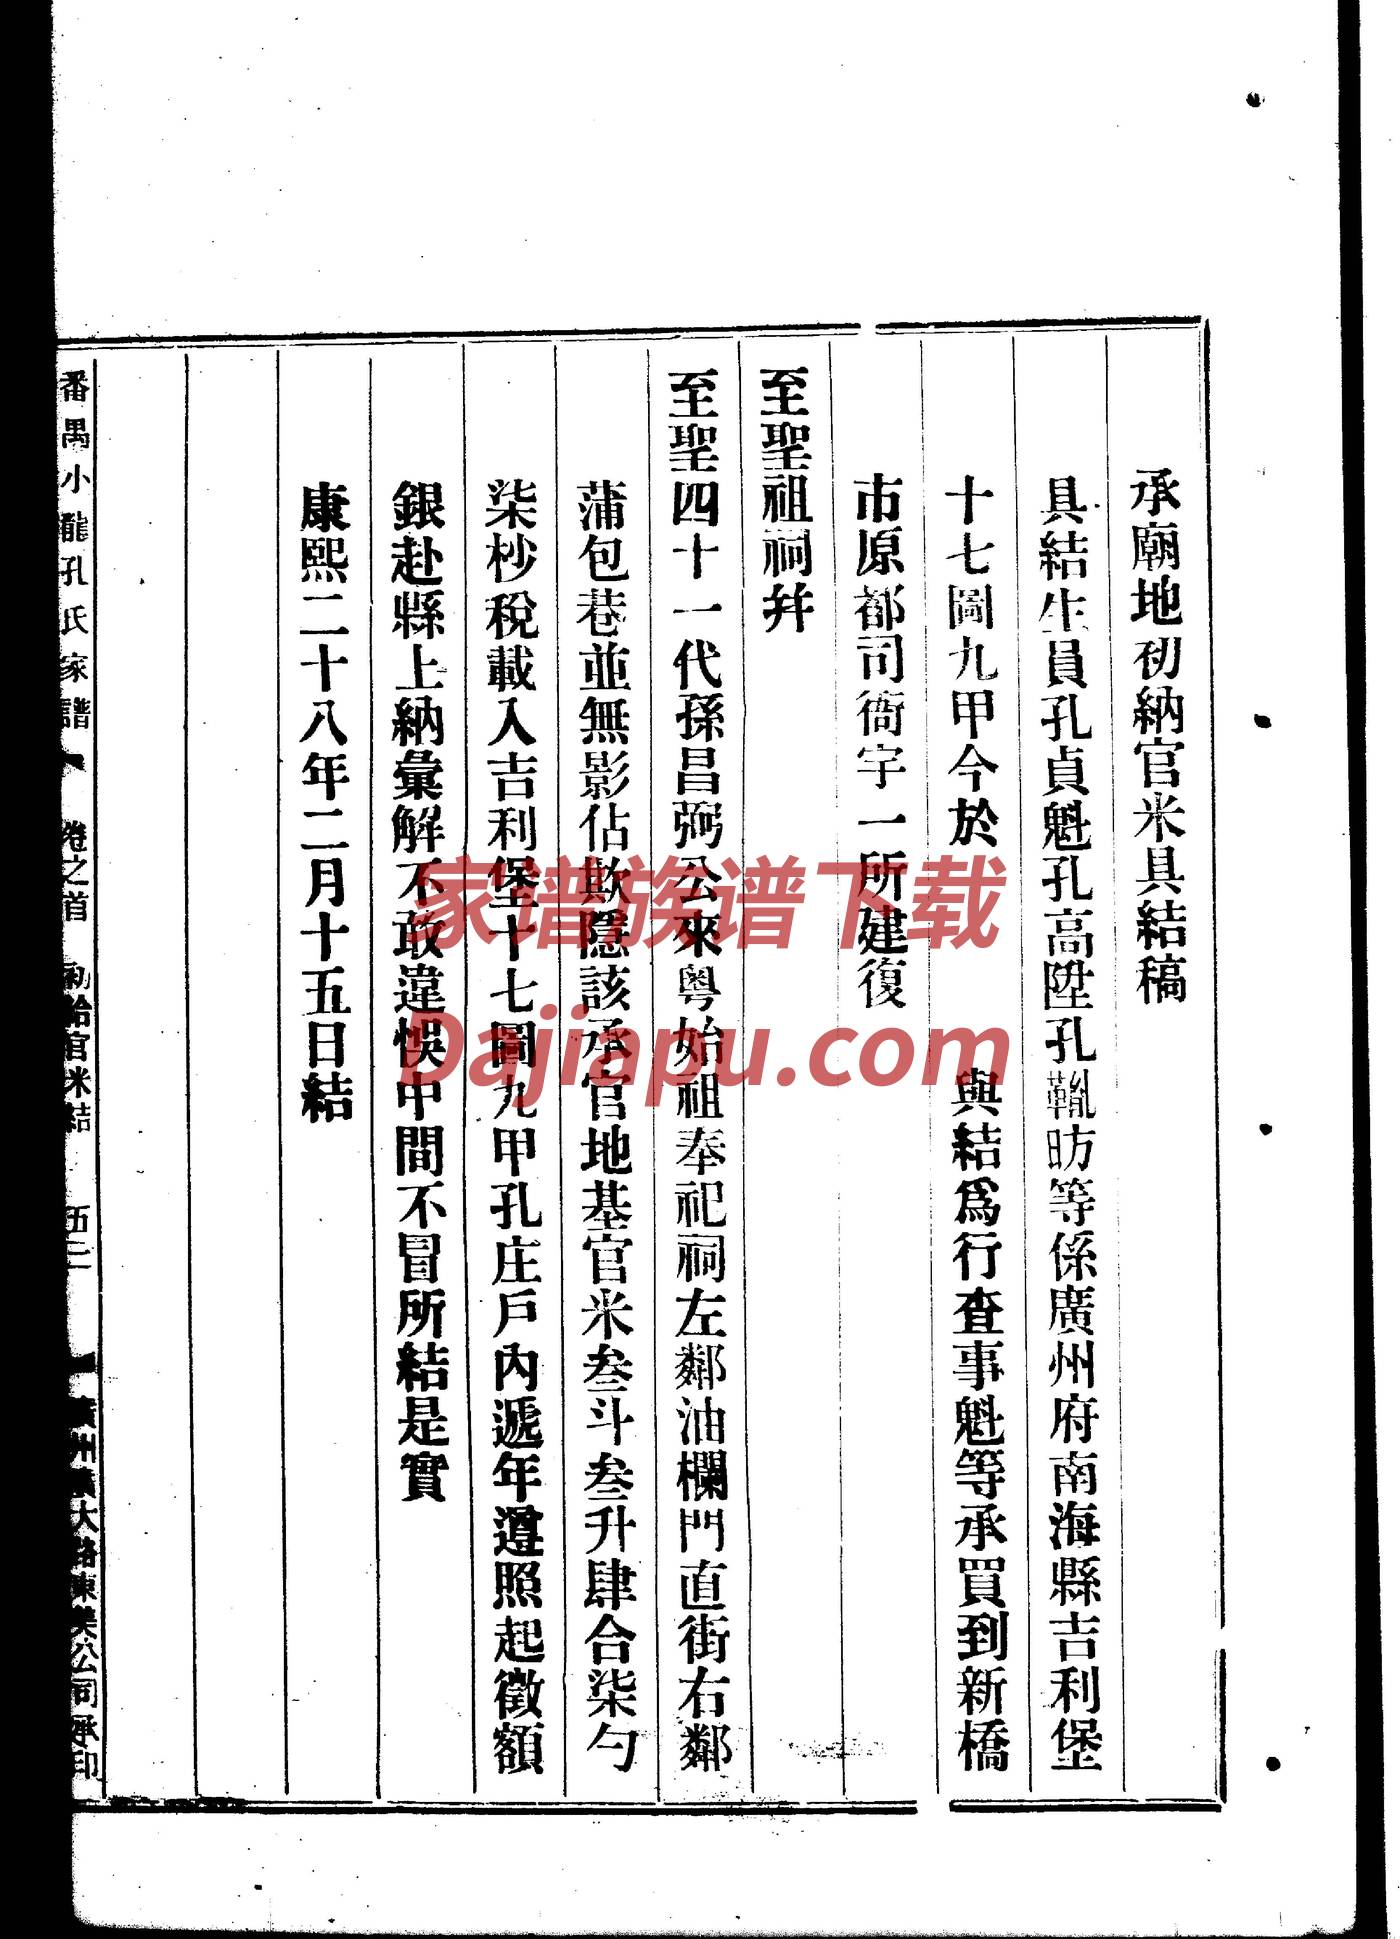 承廟地初納官米具結稿
具結生員孔貞魁孔高陞孔鞉昉等係廣州府南海縣吉利堡
十七圖九甲今於 與結爲行查事魁等承買到新橋
市原都司衙宇一所建復
至聖祖祠幷
至聖四十一代孫昌弼公來粵始祖奉祀祠左鄰油欄門直街右鄰
蒲包巷並無影佔欺隱該承官地基官米叁斗叁升肆合柒勺
柒杪稅載入吉利堡十七圖九甲孔庄戶內遞年遵照起徵額
銀赴縣上納彙解不敢違悞中間不冒所結是實
康熙二十八年二月十五日結
番禺小龍孔氏家譜 卷之首 初給官米結 五二 廣州大路東美公司承印
家谱族谱下载
Dajiapu.com